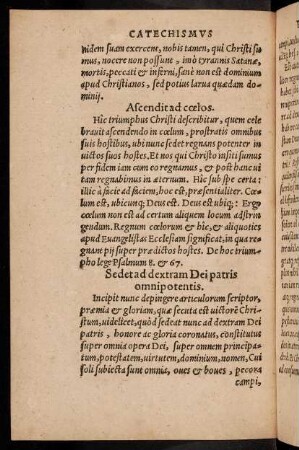 CATECHISMVS
nidem suam exercent, nobis tamen, qui Christi su-
mus, nocere non possunt, imò tyrannis Satanæ,
mortis, peccati & inferni, sanè non est dominium
apud Christianos, sed potius larua quædam do-
minij.
Ascendit ad cœlos.
Hîc triumphus Christi describitur, quem cele
brauit ascendendo in cœlum, prostratis omnibus
suis hostibus, ubi nunc sedet regnans potenter in
uictos suos hostes, Et nos qui Christo insiti sumus
per fidem iam cum eo regnamus, & post hanc ui
tam regnabimus in æternum. Hîc sub spe certa:
illic à facie ad faciem, hoc est, præsentialiter. Cœ-
lum est, ubicunq; Deus est. Deus est ubiq;: Ergo
cœlum non est ad certum aliquem locum adstrin
gendum. Regnum cœlorum & hîc, & aliquoties
apud Euangelistas Ecclesiam significat, in qua re-
gnant pij super prædictos hostes. De hoc trium-
pho lege Psalmum 8. & 67.
Sedet ad dextram Dei patris
omnipotentis.
Incipit nunc depingere articulorum scriptor,
præmia & gloriam, quæ secuta est uictorē Chri-
stum, uidelicet, quòd sedeat nunc ad dextram Dei
patris, honore ac gloria coronatus, constitutus
super omnia opera Dei, super omnem principa-
tum, potestatem, uirtutem, dominium, nomen, Cui
soli subiecta sunt omnia, oues & boues, pecora
campi,